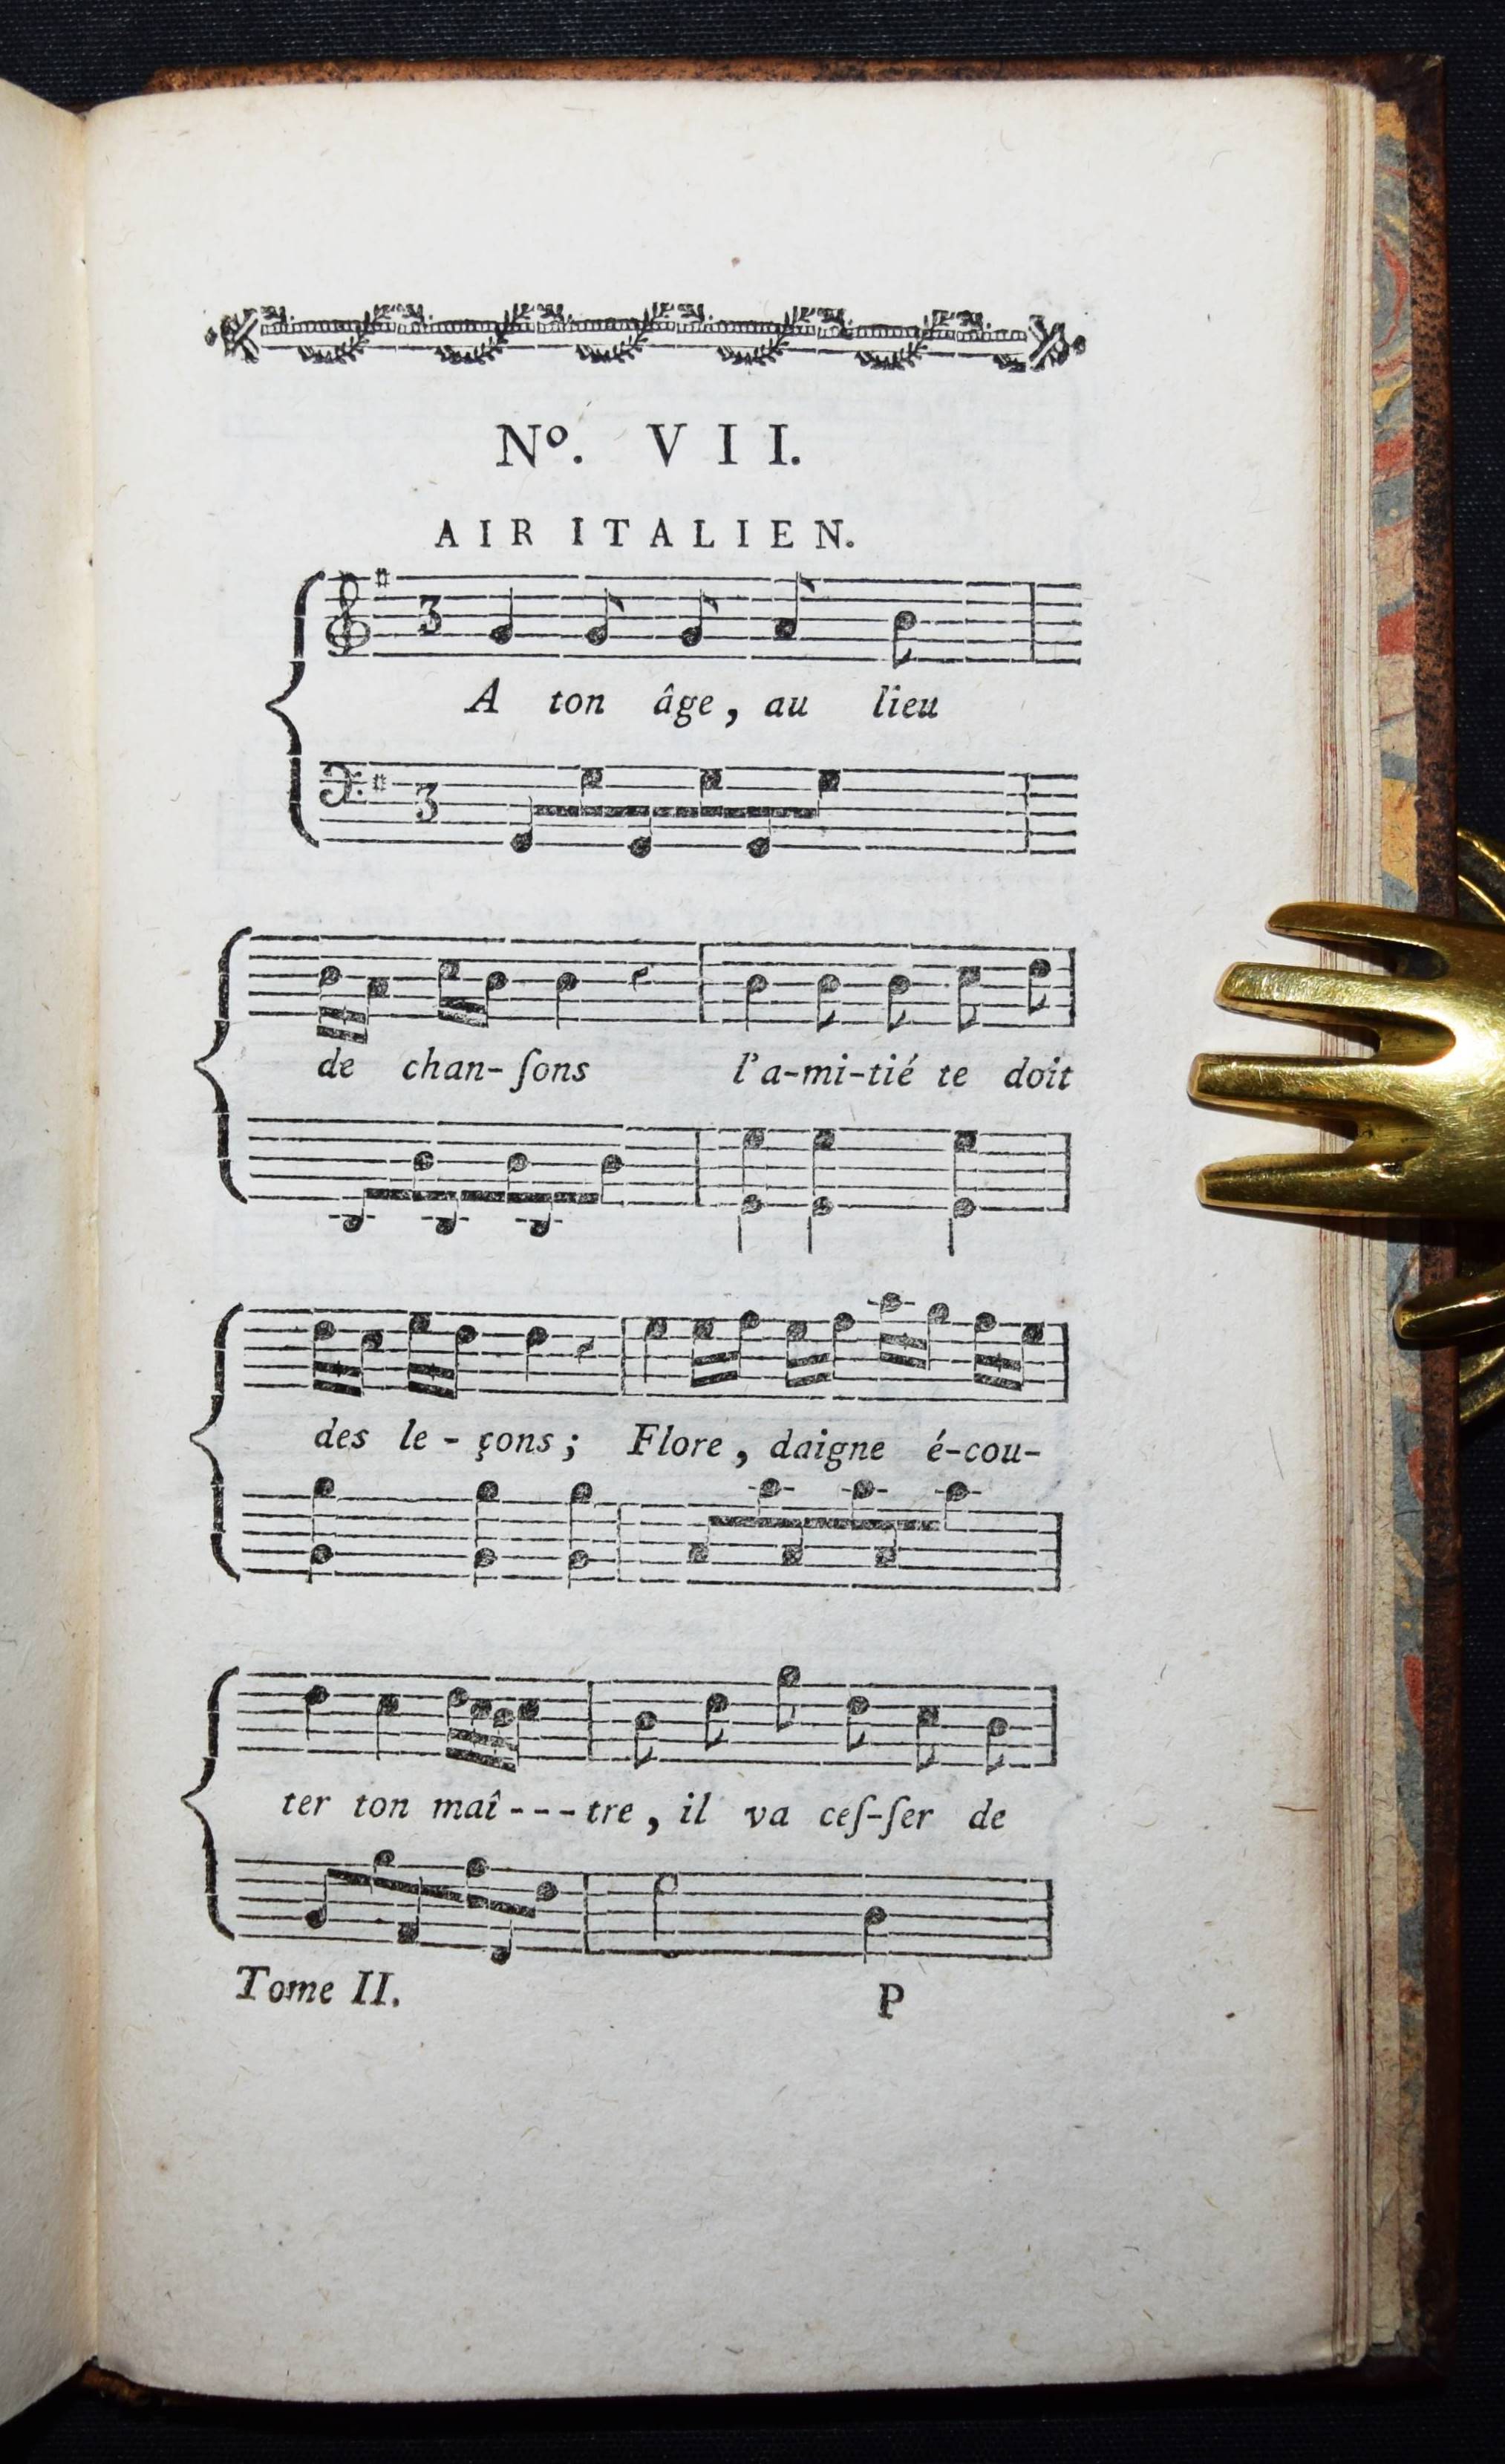 Nº. VII.
AIR ITALIEN.
3
A ton âge, au lieu
3
de chan-ſons l'a-mi-tié te doit
des le-çons; Flore, daigne é-cou-
ter ton maî---tre, il va ceſ-ſer de
Tome II. P